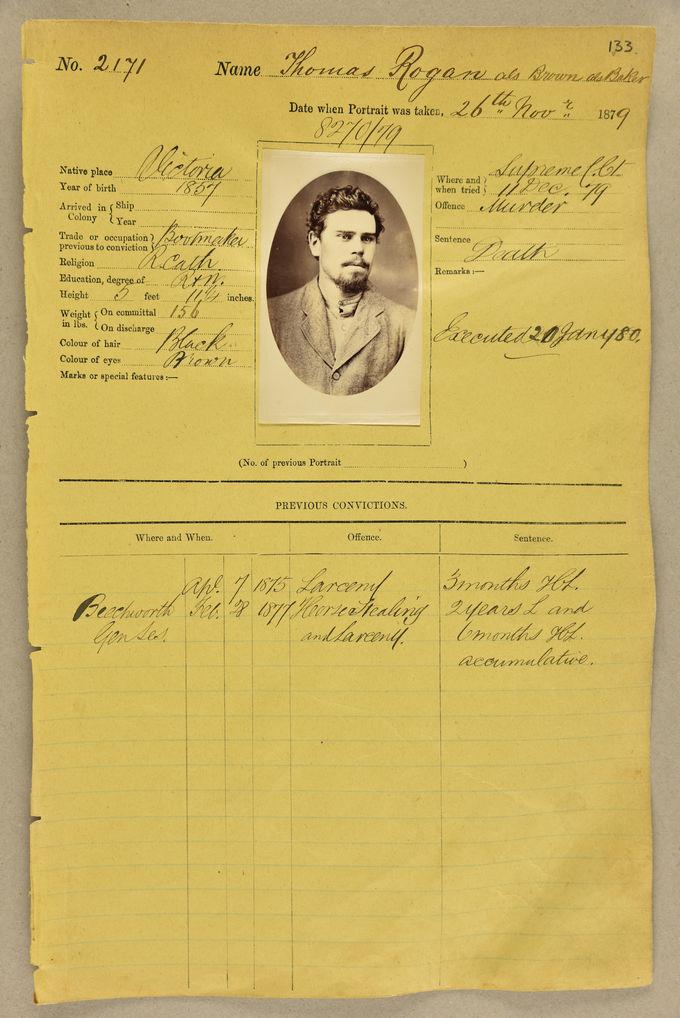 133
No. 2171 Name Thomas Rogan als Brown als Baker
Date when Portrait was taken, 26th Novr 1879
8270/79
Native place Victoria
Year of birth 1857
Arrived in Colony { Ship
Year
Trade or occupation previous to conviction } Bootmaker
Religion R. Cath.
Education, degree of R & W.
Height 5 feet 11 1/4 inches.
Weight in lbs. { On committal 156
On discharge
Colour of hair Black
Colour of eyes Brown
Marks or special features :—
Where and when tried } Supreme C. Ct
11 Dec. 79
Offence Murder
Sentence Death
Remarks :—
Executed 20 Jany 80.
(No. of previous Portrait )
PREVIOUS CONVICTIONS.
Where and When. Offence. Sentence.
Apl. 7 1875 Larceny 3 months H.L.
Beechworth Feb. 28 1877 Horse Stealing 2 years L and
Gen Ses. and Larceny. 6 months H.L.
accumulative.